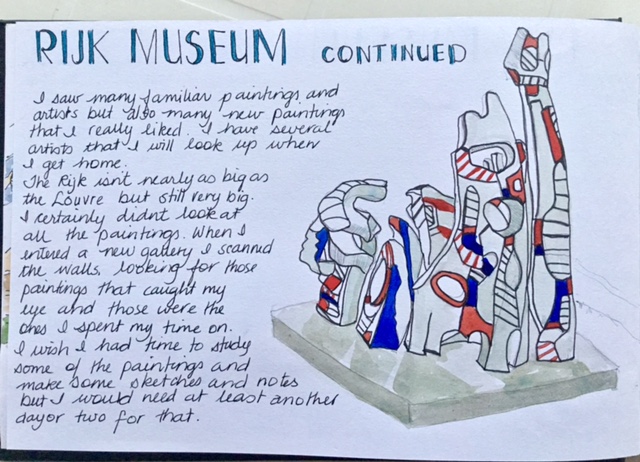 RIJK MUSEUM CONTINUED
I saw many familiar paintings and
artists but also many new paintings
that I really liked. I have several
artists that I will look up when
I get home.
The Rijk isn't nearly as big as
the Louvre but still very big.
I certainly didnt look at
all the paintings. When I
entered a new gallery I scanned
the walls, looking for those
paintings that caught my
eye and those were the
ones I spent my time on.
I wish I had time to study
some of the paintings and
make some sketches and notes
but I would need at least another
day or two for that.